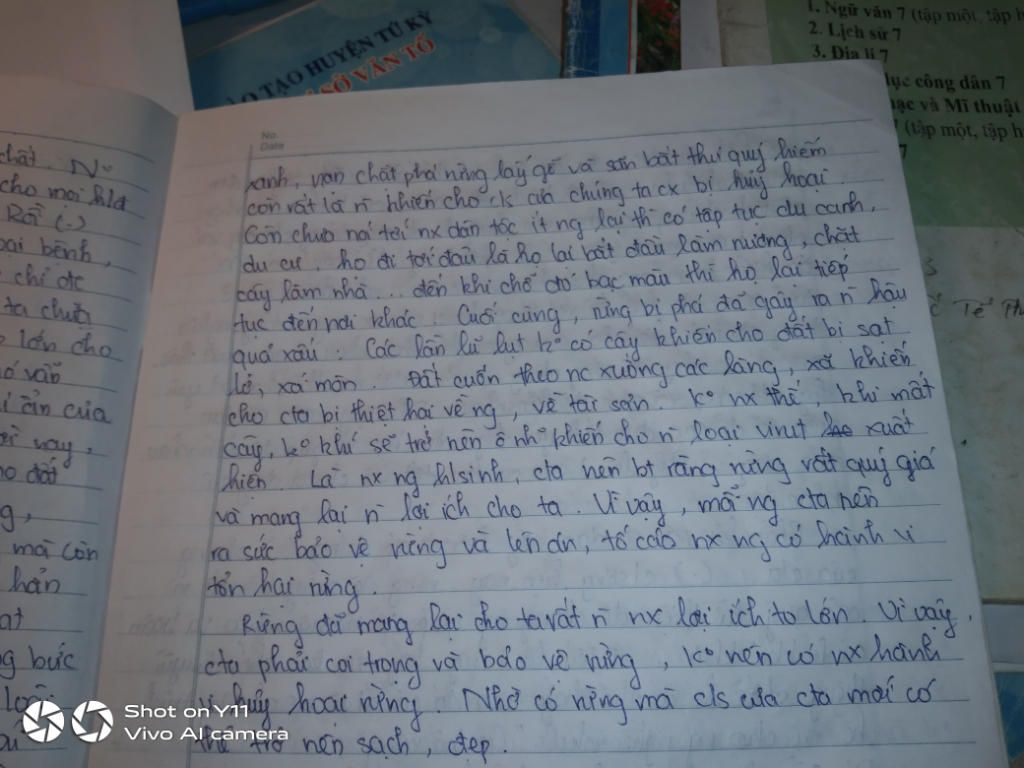 ẠO TẠO HUYỆN TỨ KỲ
SỞ VĂN TỐ
1. Ngữ văn 7 (tập một, tập h
2. Lịch sử 7
3. Địa lí 7
lục công dân 7
nạc và Mĩ thuật
(tập một, tập h
7
Tế
No.
Date
chất. N~
cho mọi
Rồi (.)
oại bệnh,
chỉ đc
ta chữa
lớn cho
vẫn
ẩn của
vậy,
o đất
g,
mà còn
hẳn
at
g bức
loài
xanh, vạn chặt phá rừng lấy gỗ và săn bắt thú quý hiếm
còn rất là n~ khiến cho c/s của chúng ta cx bị hủy hoại.
Còn chưa nói tới nx dân tộc ít ng lại thì có tập tục du canh,
du cư. họ đi tới đâu là họ lại bắt đầu làm nương, chặt
cây làm nhà... đến khi chỗ đó bạc màu thì họ lại tiếp
tục đến nơi khác. Cuối cùng, rừng bị phá đã gây ra n~ hậu
quả xấu: Các lần lũ lụt k° có cây khiến cho đất bị sạt
lở, xói mòn. Đất cuốn theo nc xuống các làng, xã khiến
cho cta bị thiệt hại về ng, về tài sản. K° nx thế, khi mất
cây, k° khí sẽ trở nên ô nh~ khiến cho n~ loại virut xuất
hiện. Là nx ng hlsinh, cta nên bt rằng rừng rất quý giá
và mang lại n~ lợi ích cho ta. Vì vậy, mỗi ng cta nên
ra sức bảo vệ rừng và lên án, tố cáo nx ng có hành vi
tổn hại rừng.
Rừng đã mang lại cho ta rất n~ nx lợi ích to lớn. Vì vậy,
cta phải coi trọng và bảo vệ rừng, k° nên có nx hành
vi hủy hoại rừng. Nhờ có rừng mà c/s của cta mới có
thể trở nên sạch, đẹp.
Shot on Y11
Vivo AI camera